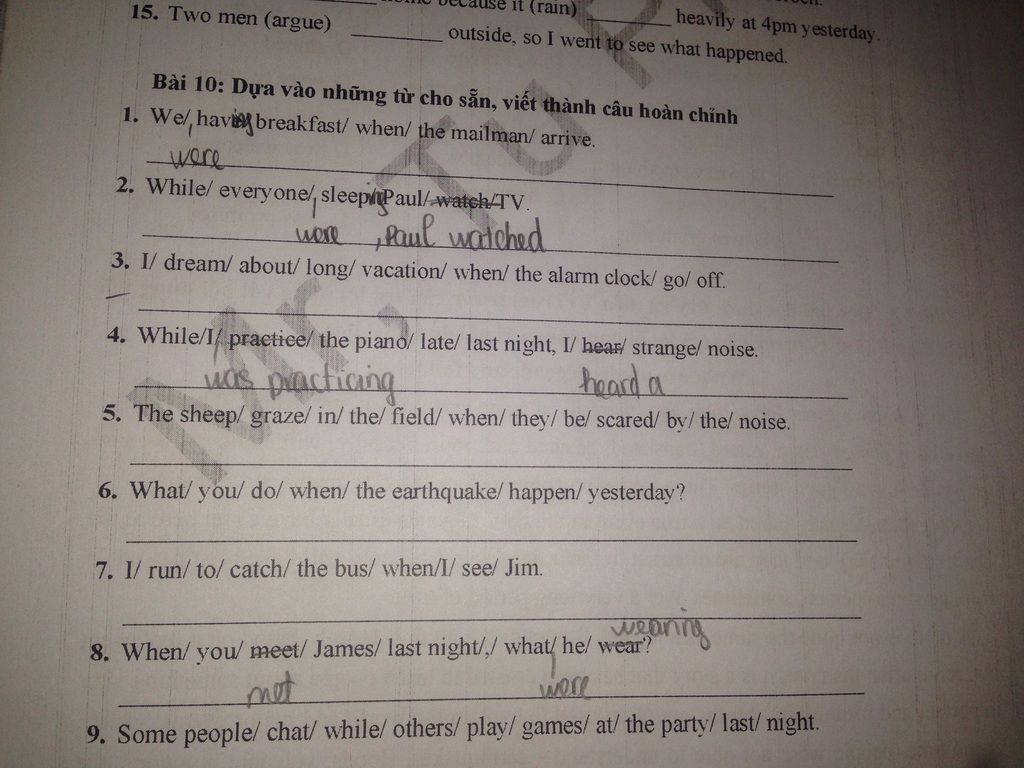 because it (rain) ________ heavily at 4pm yesterday.
15. Two men (argue) ________ outside, so I went to see what happened.
Bài 10: Dựa vào những từ cho sẵn, viết thành câu hoàn chỉnh
1. We/ having breakfast/ when/ the mailman/ arrive.
were
2. While/ everyone/ sleeping Paul/ watch/ TV.
were , Paul watched
3. I/ dream/ about/ long/ vacation/ when/ the alarm clock/ go/ off.
4. While/I/ practice/ the piano/ late/ last night, I/ hear/ strange/ noise.
was practicing heard a
5. The sheep/ graze/ in/ the/ field/ when/ they/ be/ scared/ by/ the/ noise.
6. What/ you/ do/ when/ the earthquake/ happen/ yesterday?
7. I/ run/ to/ catch/ the bus/ when/I/ see/ Jim.
wearing
8. When/ you/ meet/ James/ last night/,/ what/ he/ wear?
met were
9. Some people/ chat/ while/ others/ play/ games/ at/ the party/ last/ night.